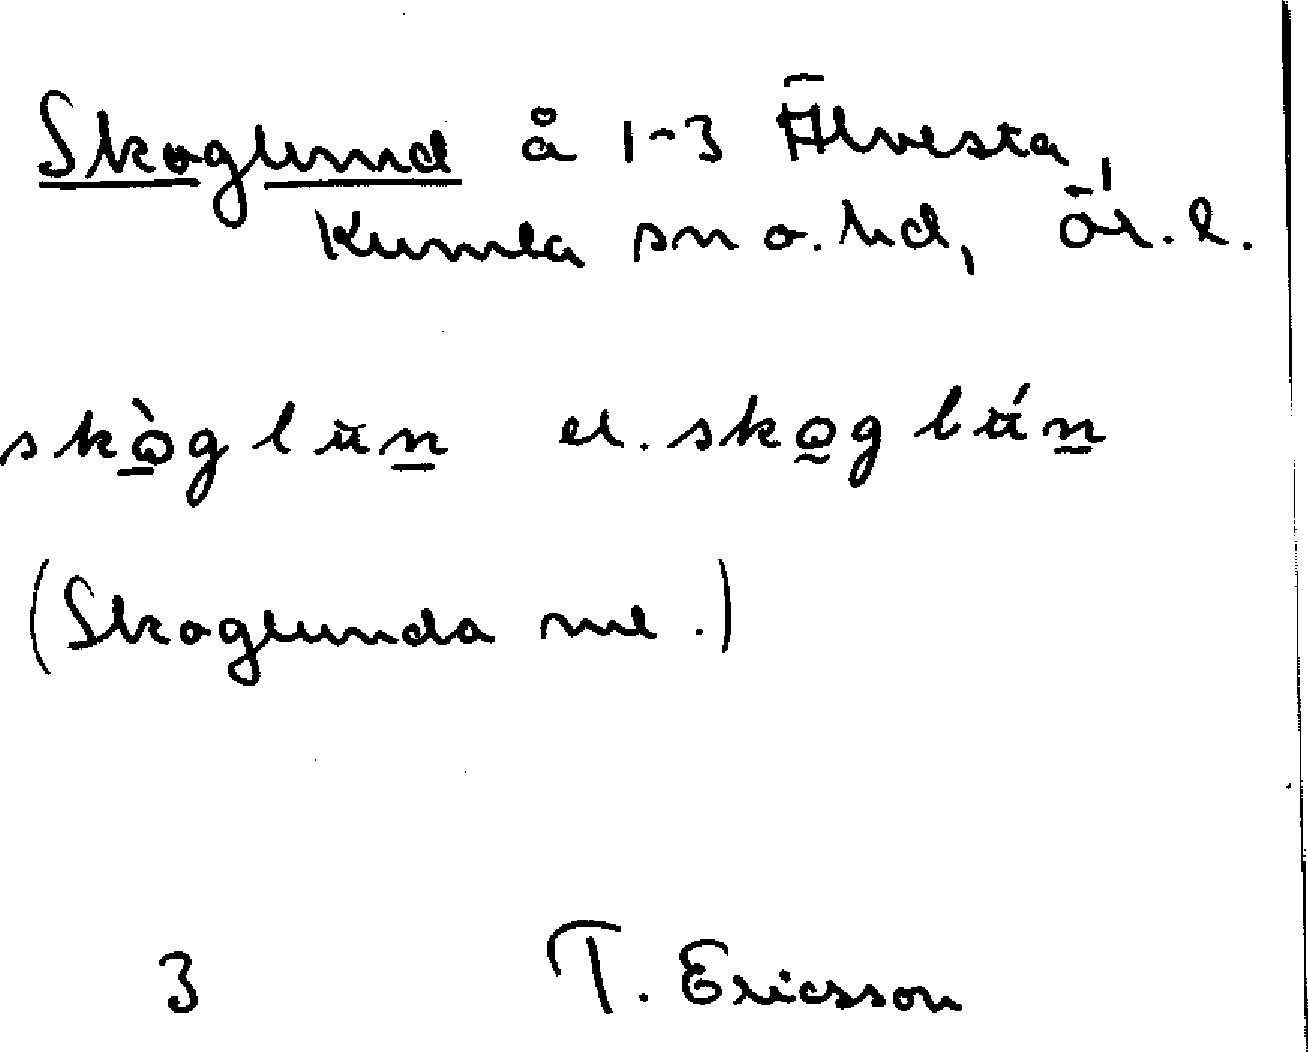 Skoglund å 1-3 Älvesta,
Kumla sn o. hd, Ör. l.
skò̲g lun̲ el. skog̰ lún̲
(Skoglunda ml.)
3 T. Ericsson